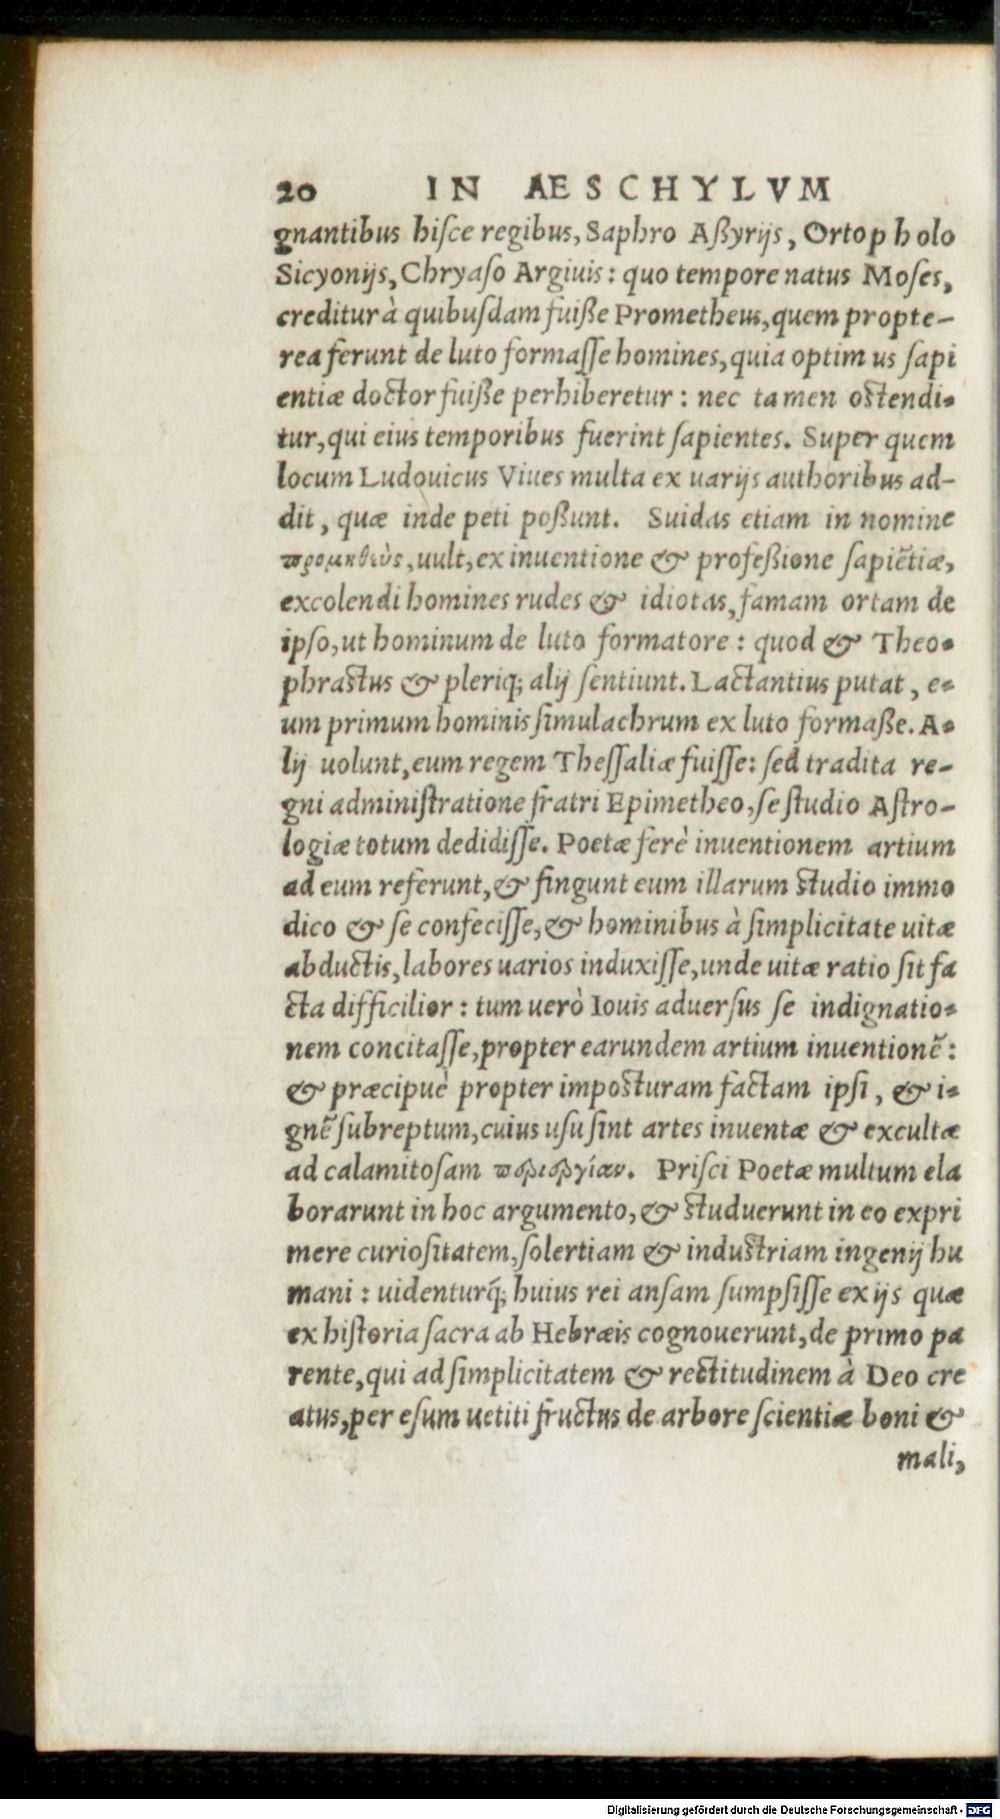 20 IN AESCHYLVM
gnantibus hisce regibus, Saphro Aßyrijs, Ortopholo
Sicyonijs, Chryaso Argiuis: quo tempore natus Moses,
creditur à quibusdam fuiße Prometheus, quem propte-
rea ferunt de luto formasse homines, quia optimus sapi
entiæ doctor fuiße perhiberetur: nec tamen ostendi-
tur, qui eius temporibus fuerint sapientes. Super quem
locum Ludouicus Viues multa ex uarijs authoribus ad-
dit, quæ inde peti poßunt. Suidas etiam in nomine
προμηθεὺς, uult, ex inuentione & profeßione sapiẽtiæ,
excolendi homines rudes & idiotas, famam ortam de
ipso, ut hominum de luto formatore: quod & Theo-
phrastus & pleriq; alij sentiunt. Lactantius putat, e-
um primum hominis simulachrum ex luto formaße. A-
lij uolunt, eum regem Thessaliæ fuisse: sed tradita re-
gni administratione fratri Epimetheo, se studio Astro-
logiæ totum dedidisse. Poetæ ferè inuentionem artium
ad eum referunt, & fingunt eum illarum studio immo
dico & se confecisse, & hominibus à simplicitate uitæ
abductis, labores uarios induxisse, unde uitæ ratio sit fa
cta difficilior: tum uerò Iouis aduersus se indignatio-
nem concitasse, propter earundem artium inuentionẽ:
& præcipuè propter imposturam factam ipsi, & i-
gnẽ subreptum, cuius usu sint artes inuentæ & excultæ
ad calamitosam περιεργίαν. Prisci Poetæ multum ela
borarunt in hoc argumento, & studuerunt in eo expri
mere curiositatem, solertiam & industriam ingenij hu
mani: uidenturq́; huius rei ansam sumpsisse ex ijs quæ
ex historia sacra ab Hebræis cognouerunt, de primo pa
rente, qui ad simplicitatem & rectitudinem à Deo cre
atus, per esum uetiti fructus de arbore scientiæ boni &
mali,
Digitalisierung gefördert durch die Deutsche Forschungsgemeinschaft - DFG